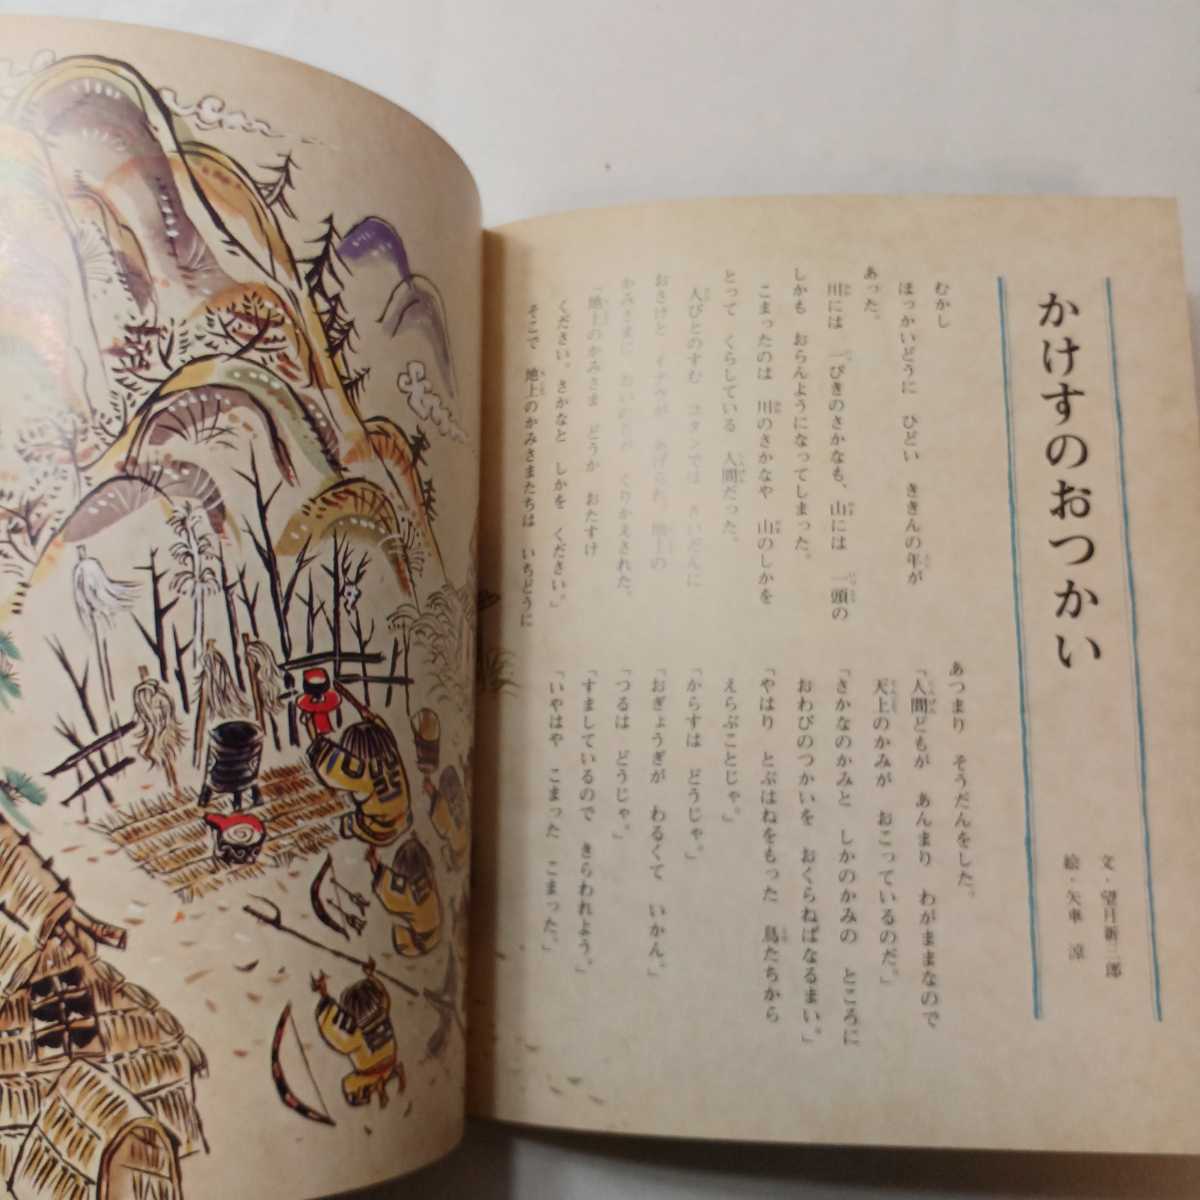 かけすのおつかい
文・望月新三郎
絵・矢車 涼
むかし
ほっかいどうに ひどい ききんの年が
あった。
川には 一ぴきのさかなも、山には 一頭の
しかも おらんようになってしまった。
こまったのは 川のさかなや 山のしかを
とって くらしている 人間だった。
人びとのすむ コタンでは さいだんに
おさけと イナウが あげられ、地上の
かみさまに おいのりが くりかえされた。
「地上のかみさま どうか おたすけ
ください。さかなと しかを ください。」
そこで 地上のかみさまたちは いちどうに
あつまり そうだんをした。
「人間どもが あんまり わがままなので
天上のかみが おこっているのだ。」
「さかなのかみと しかのかみの ところに
おわびのつかいを おくらねばなるまい。」
「やはり とぶはねをもった 鳥たちから
えらぶことじゃ。」
「からすは どうじゃ。」
「おぎょうぎが わるくて いかん。」
「つるは どうじゃ。」
「すましているので きらわれよう。」
「いやはや こまった こまった。」